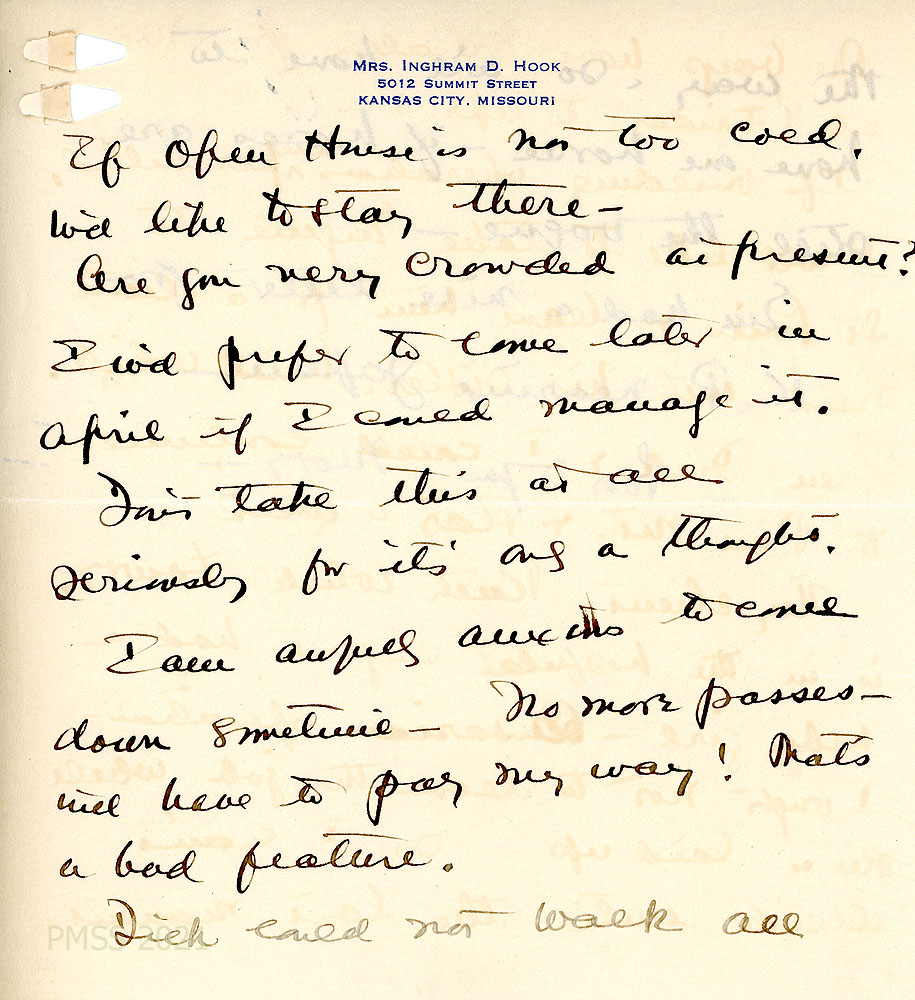 MRS. INGHRAM D. HOOK
5012 SUMMIT STREET
KANSAS CITY, MISSOURI
If Open House is not too cold.
I'd like to stay there —
Are you very crowded at present?
I w'd prefer to come later in
April if I could manage it.
Don't take this at all
seriously for it's only a thought.
I am awfully anxious to come
down sometime — No more passes —
will have to pay my way! That's
a bad feature.
Dick could not walk all
PMSS 2021